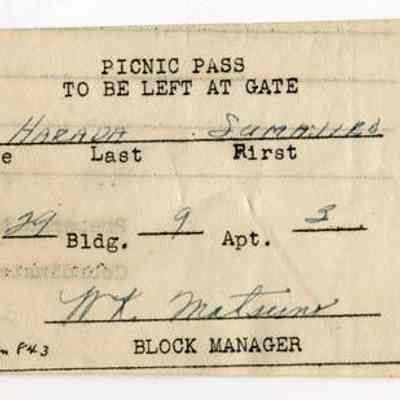 PICNIC PASS
TO BE LEFT AT GATE
HARADA SUMAJIRO
e Last First
29 Bldg. 9 Apt. 3
W. K. Matsuno
BLOCK MANAGER